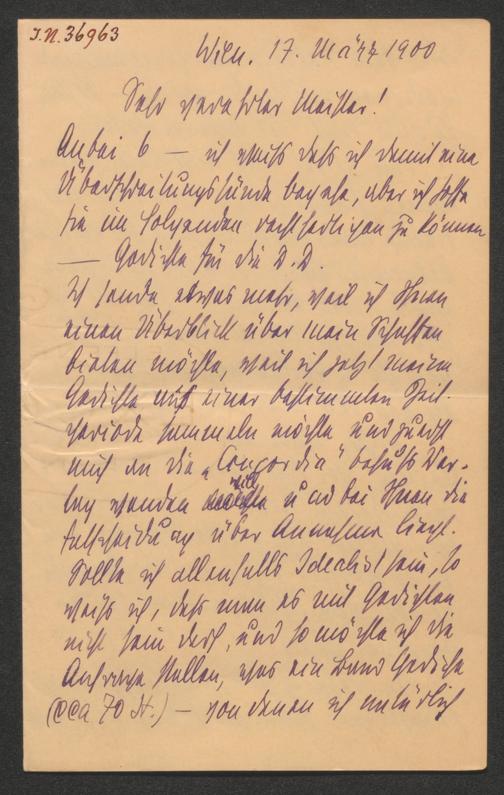 I.N. 36963
Wien. 17. März 1900
Sehr verehrter Meister!
Anbei 6 — ich weiß daß ich damit eine
Überschreitungssünde begehe, aber ich hoffe
sie im folgenden rechtfertigen zu können
— Gedichte für die D. D.
Ich sende etwas mehr, weil ich Ihnen
einen Überblick über mein Schaffen
bieten möchte, weil ich jetzt meine
Gedichte aus einer bestimmten Zeit-
periode sammeln möchte und zuerst
mich an die „Concordia" behufs Ver-
lag wenden will und bei Ihnen die
Entscheidung über Annahme liegt.
Sollte ich allenfalls Idealist sein, so
weiß ich, daß man es mit Gedichten
nicht sein darf, und so möchte ich die
Anfrage stellen, was ein Band Gedichte
(cca 70 St.) — von denen ich natürlich